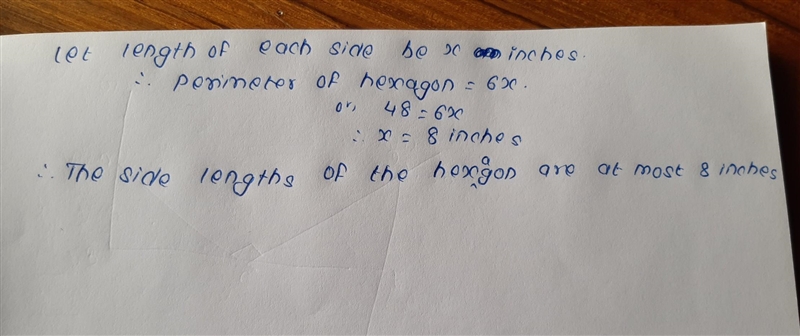 Let length of each side be x inches.
∴ perimeter of hexagon = 6x.
or, 48 = 6x
∴ x = 8 inches
∴ The side lengths of the hexagon are at most 8 inches